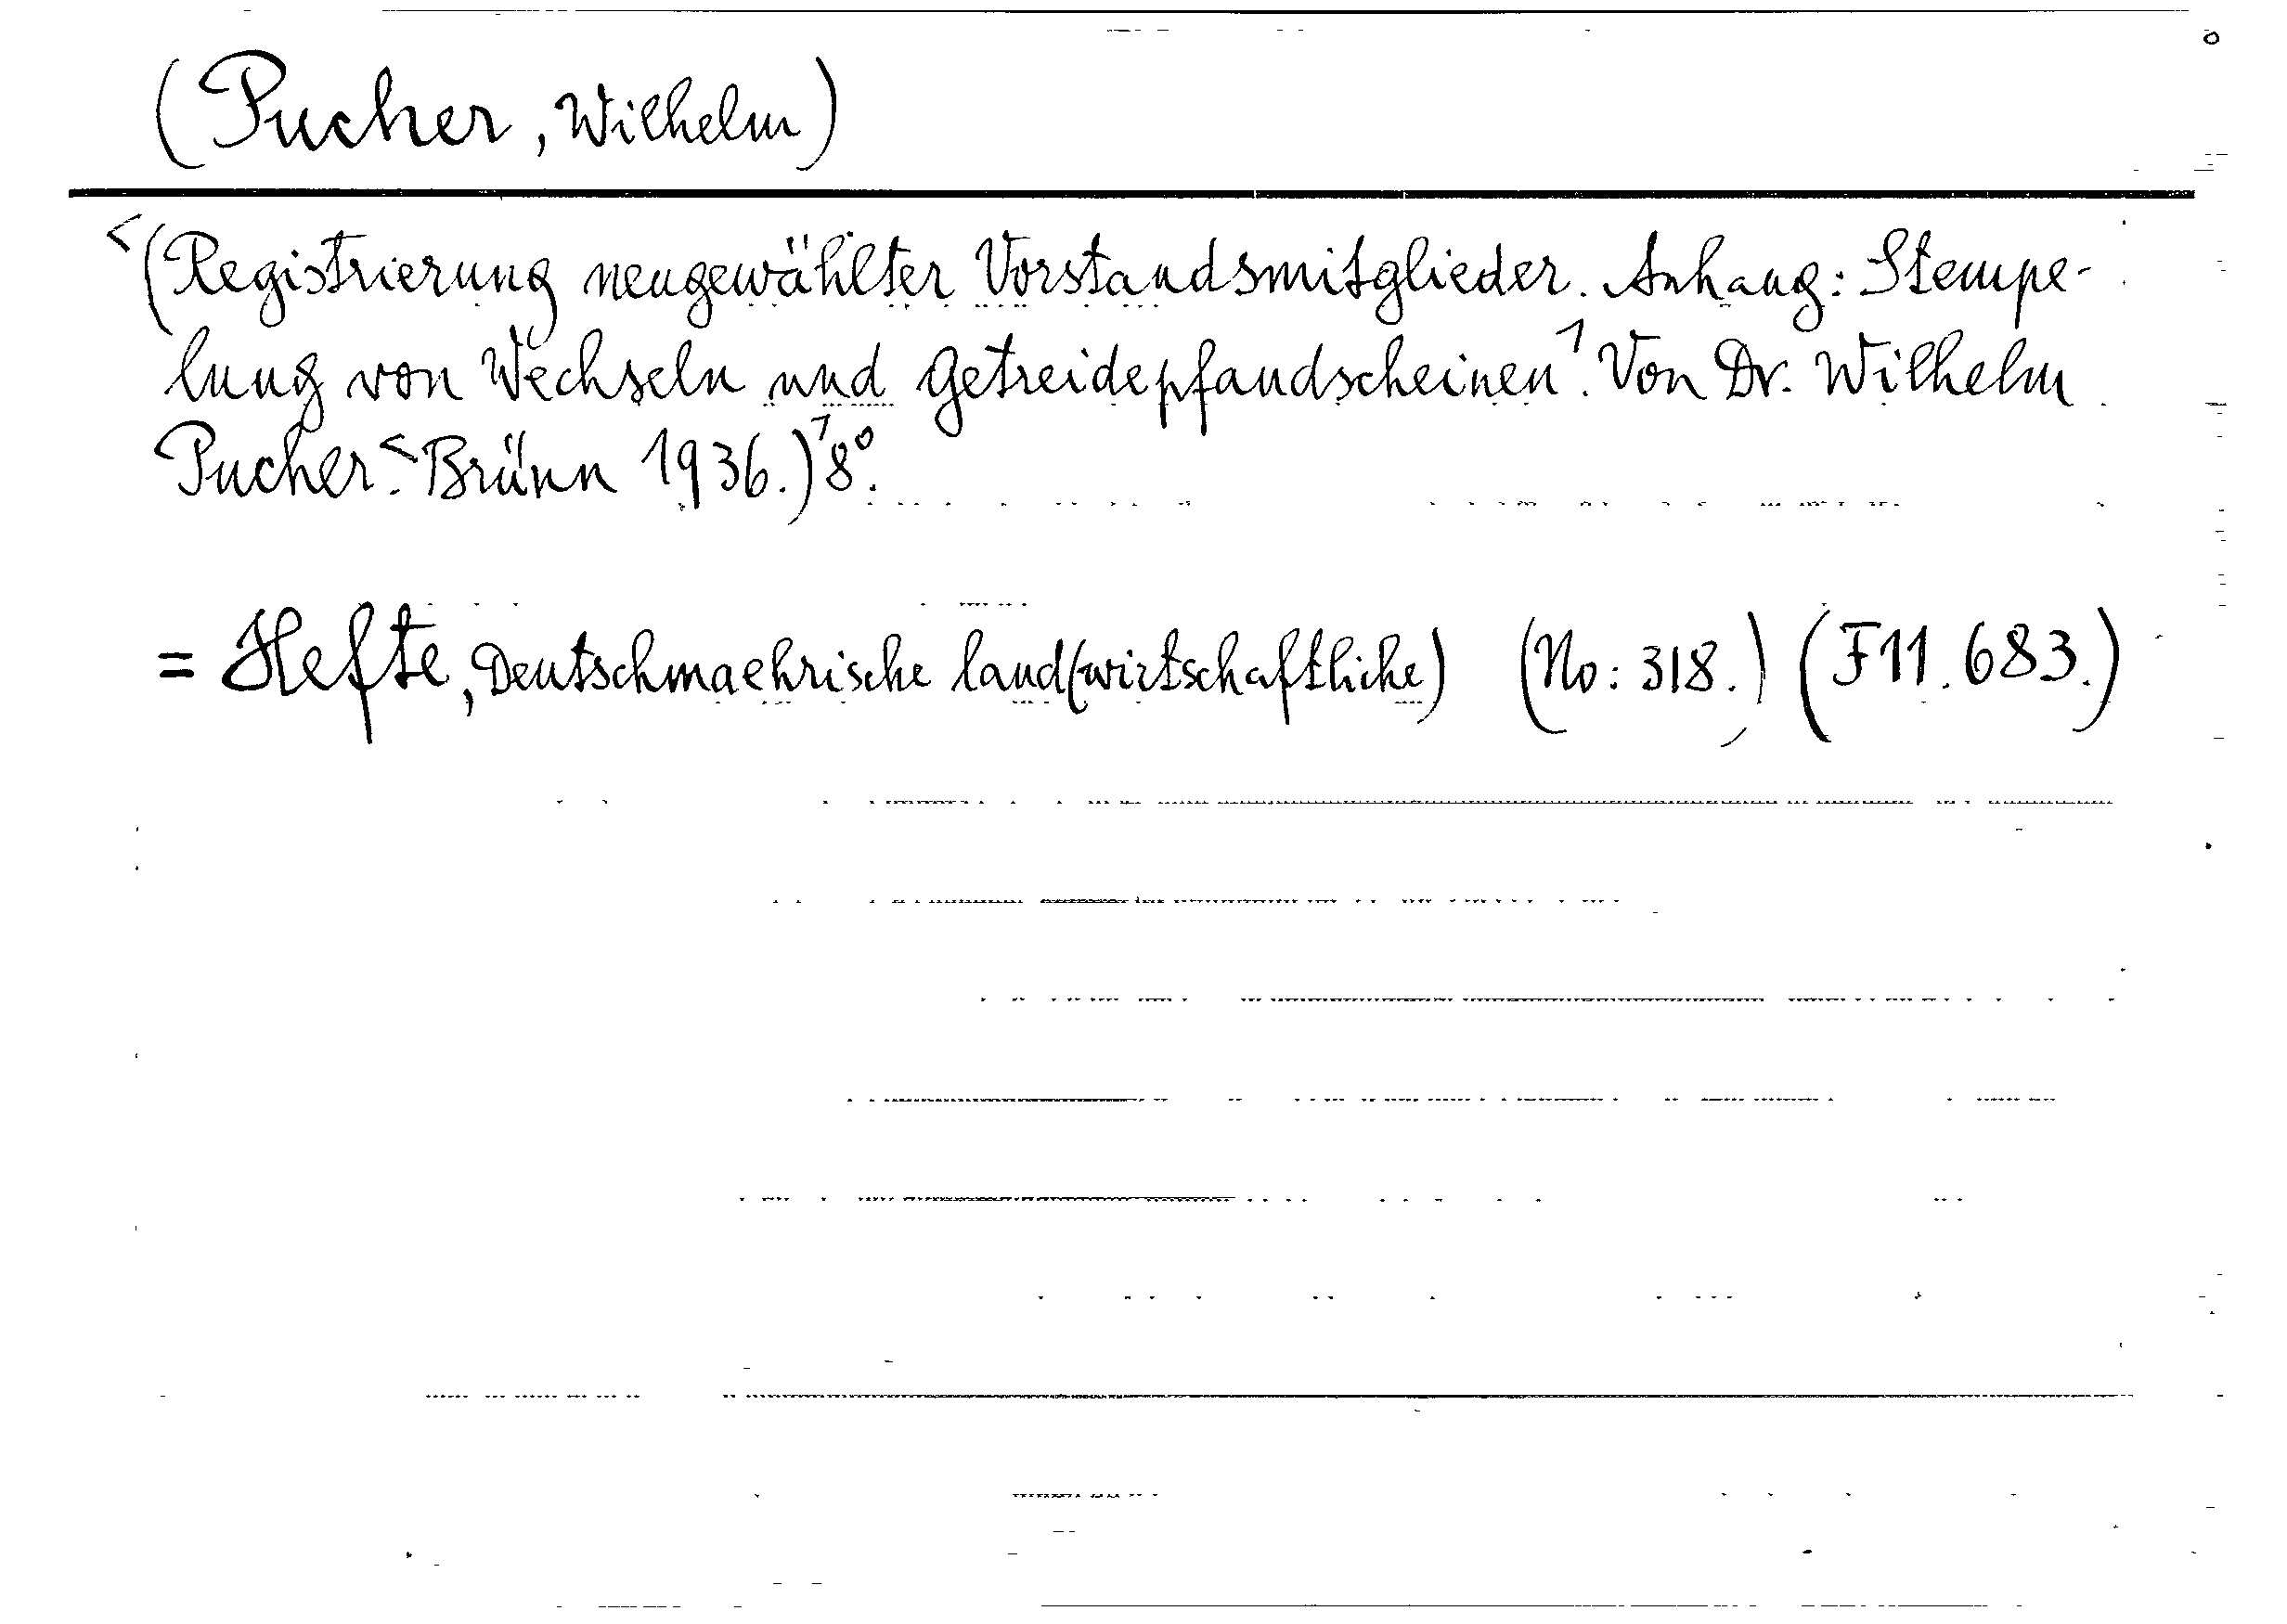 (Pucher, Wilhelm)
<(Registrierung neugewählter Vorstandsmitglieder. Anhang: Stempe-
lung von Wechseln und Getreidepfandscheinen>. Von Dr. Wilhelm
Pucher.<Brünn 1936.)>8°.
= Hefte, Deutschmaehrische land(wirtschaftliche) (No: 318.) (F11.683.)